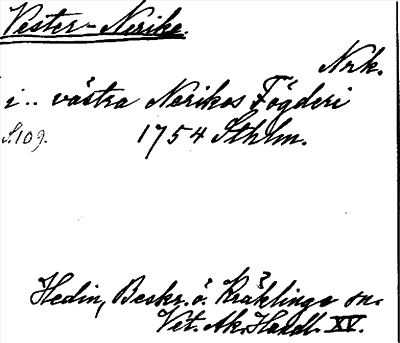 Vester-Nerike.
Nrk.
i.. västra Nerikes Fögderi
S. 109. 1754 Sthlm.
Hedin, Beskr. ö. Kräklinge sn.
Vet. Ak. Handl. XV.